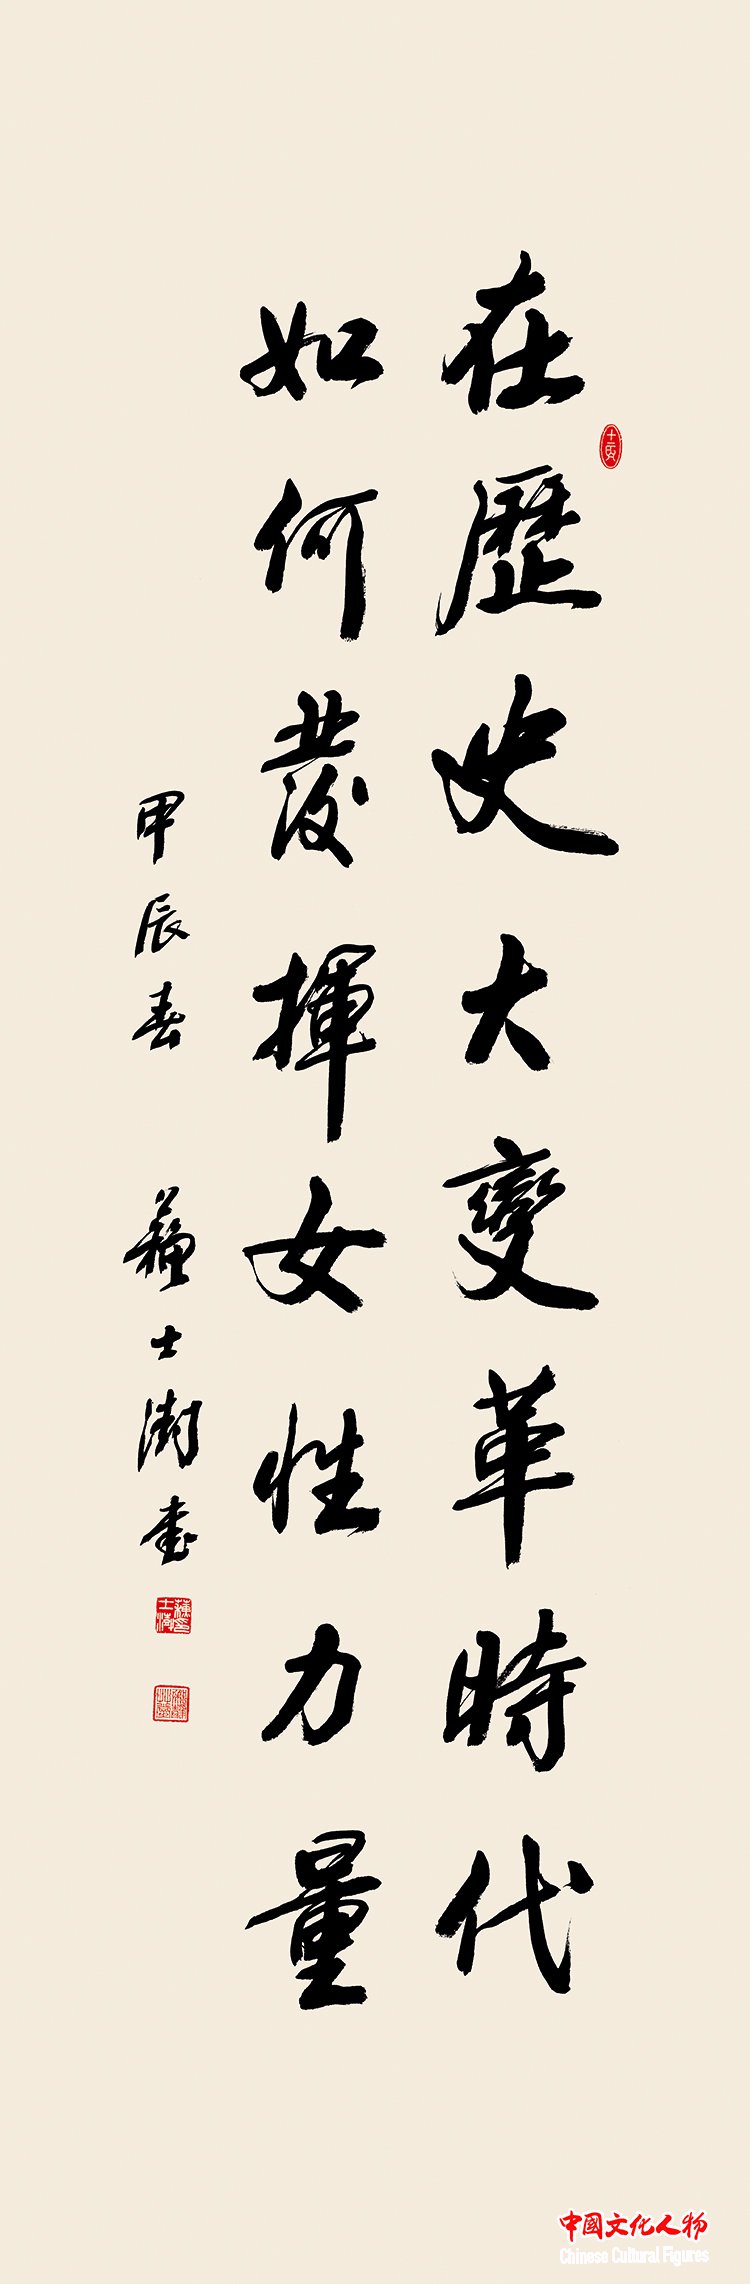 在歷史大變革時代
如何發揮女性力量
甲辰春 蘇士澍書
中國文化人物
Chinese Cultural Figures